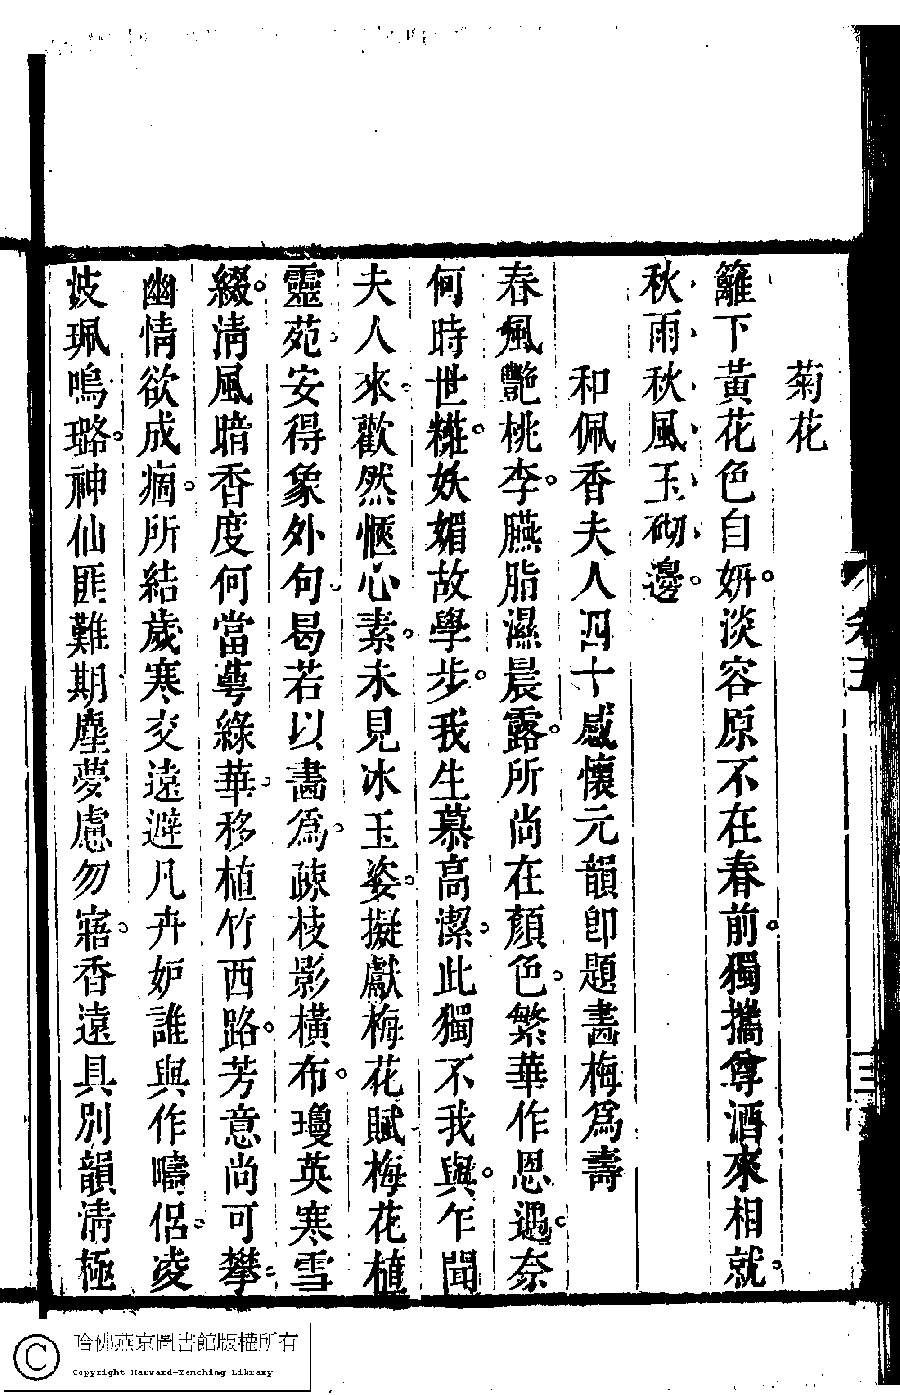 菊花
籬下黃花色自妍。淡容原不在春前。獨攜尊酒來相就。
秋雨秋風玉砌邊。
和佩香夫人四十感懷元韻卽題畫梅為壽
春風艷桃李。臙脂濕晨露。所尚在顏色。繁華作恩遇。奈
何時世糚。妖媚故學步。我生慕高潔。此獨不我與。乍聞
夫人來。歡然愜心素。未見冰玉姿。擬獻梅花賦。梅花植
靈苑。安得象外句。曷若以畵為。疎枝影橫布。瓊英寒雪
綴。清風暗香度。何當蕚綠華。移植竹西路。芳意尚可攀。
幽情欲成痼。所結歲寒交。遠避凡卉妒。誰與作疇侶。凌
波珮鳴璐。神仙匪難期。塵夢慮勿寤。香遠具別韻。清極
卷五
三
哈佛燕京圖書館版權所有
Copyright Harvard-Yenching Library